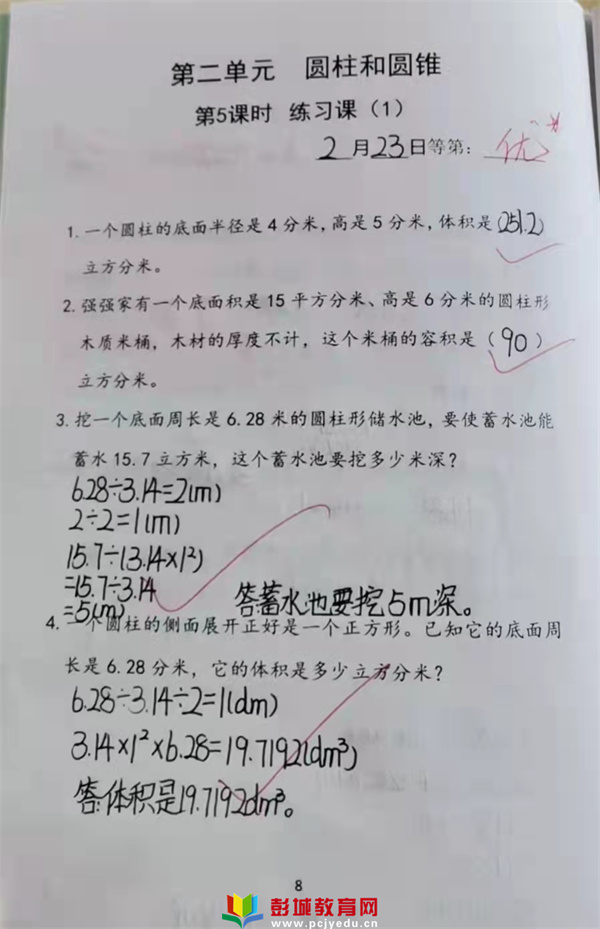 第二单元 圆柱和圆锥
第5课时 练习课(1)
2月23日等第:优
1.一个圆柱的底面半径是4分米,高是5分米,体积是(251.2)
立方分米。
2.强强家有一个底面积是15平方分米、高是6分米的圆柱形
木质米桶,木材的厚度不计,这个米桶的容积是(90)
立方分米。
3.挖一个底面周长是6.28米的圆柱形储水池,要使蓄水池能
蓄水15.7立方米,这个蓄水池要挖多少米深?
6.28÷3.14=2(m)
2÷2=1(m)
15.7÷(3.14×1²)
=15.7÷3.14
=5(m)
答蓄水池要挖5m深。
4.一个圆柱的侧面展开正好是一个正方形。已知它的底面周
长是6.28分米,它的体积是多少立方分米?
6.28÷3.14÷2=1(dm)
3.14×1²×6.28=19.7192(dm³)
答:体积是19.7192dm³。
8
彭城教育网
www.pcjyedu.cn